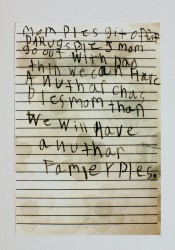 mom ples git off of
DRUGS PLES mom
go out with DaD
thin we can Have
A Nuthar chas
Ples mom than
We Will Have
a Nuthar
Famley Ples.